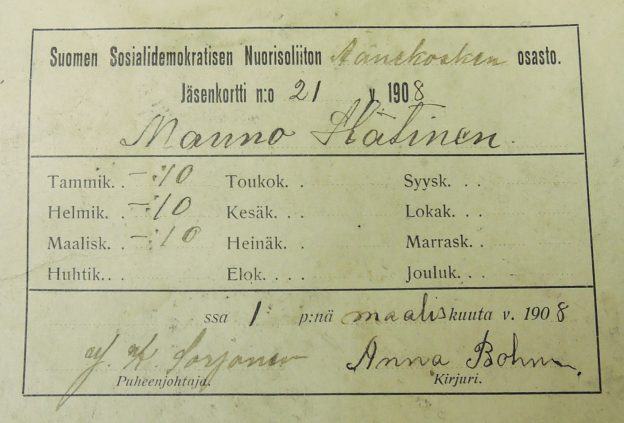 Suomen Sosialidemokratisen Nuorisoliiton Äänekosken osasto.
Jäsenkortti n:o 21 v. 1908
Manno
Tammik. . –:10 Toukok. . . Syysk. . .
Helmik. . –:10 Kesäk. . . Lokak. . .
Maalisk. . –:10 Heinäk. . . Marrask. . .
Huhtik. . . Elok. . . . Jouluk. . .
ssa 1 p:nä maaliskuuta v. 1908
Sorjonen Anna Bohm
Puheenjohtaja. Kirjuri.